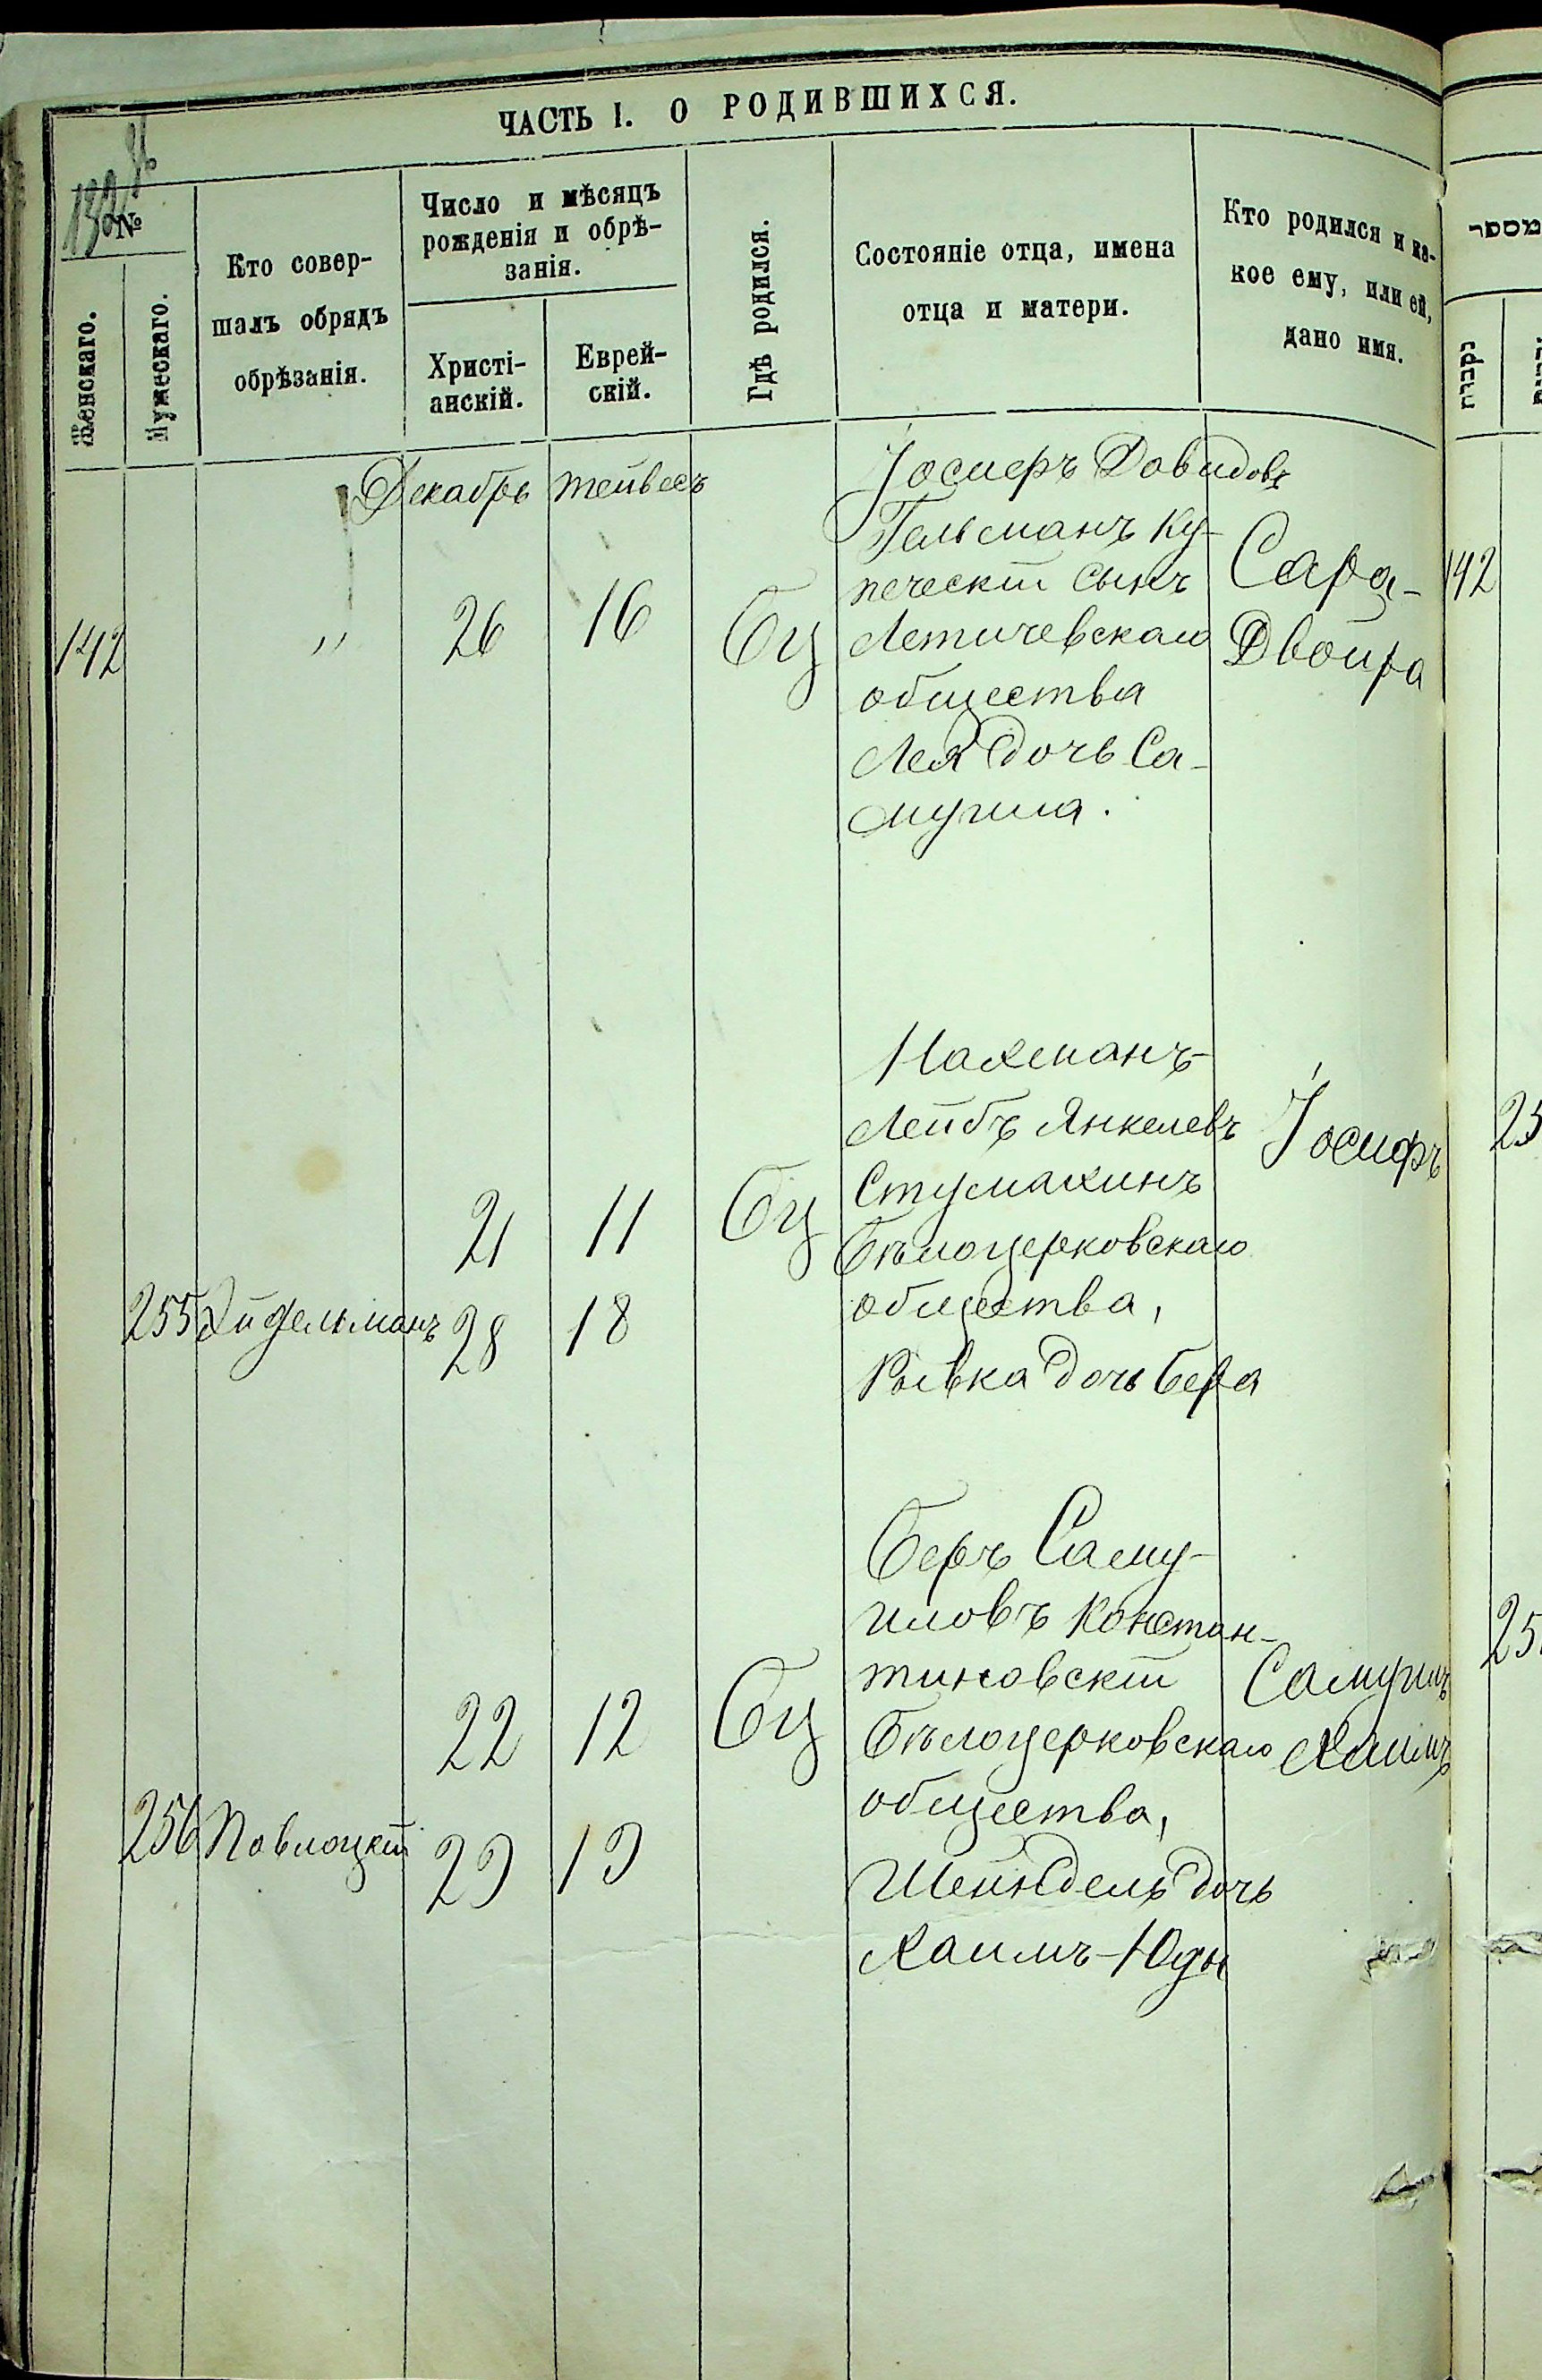 ЧАСТЬ I. О РОДИВШИХСЯ.
№
Женскаго.
Мужескаго.
Кто совер-
шалъ обрядъ
обрѣзанія.
Число и мѣсяцъ
рожденія и обрѣ-
занія.
Христі-
анскій.
Еврей-
скій.
Гдѣ родился.
Состояніе отца, имена
отца и матери.
Кто родился и ка-
кое ему, или ей,
дано имя.
מספר
נקבות
Декабрь Тейвесъ
142 " 26 16 Бц
Іосифъ Довидовъ
Гельманъ ку-
печескій сынъ
Летичевскаго
общества
Лея дочь Са-
муила.
Сара-
Двойра
142
255 Эйдельманъ
21 11 Бц
28 18
Нахманъ-
Лейбъ Янкелевъ
Стумахинъ
Бѣлоцерковскаго
общества,
Рывка дочь Бера
Іосифъ
25
256 Паволоцкій
22 12 Бц
29 19
Беръ Саму-
иловъ Констан-
тиновскій
Бѣлоцерковскаго
общества,
Шейндель дочь
Хаимъ-Юды
Самуилъ
Хаимъ
25